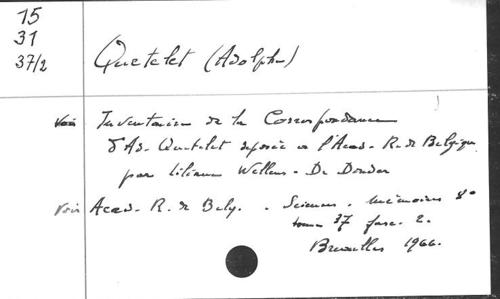 15
31
37/2
Quetelet (Adolphe)
voir Inventaire de la Correspondance
d'Ad. Quetelet déposée à l'Acad. R. de Belgique
par Liliane Wellens - De Donder
Voir Acad. R. de Belg. . Sciences . Mémoires 8°
tome 37 fasc. 2.
Bruxelles 1966.